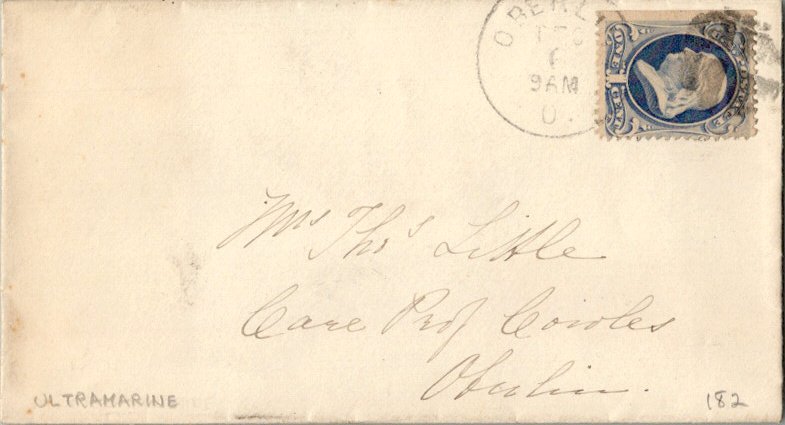 OBERL
DEC
6
9AM
O.
ONE CENT
Mrs Thos Little
Care Prof Cowles
Oberlin.
ULTRAMARINE
182